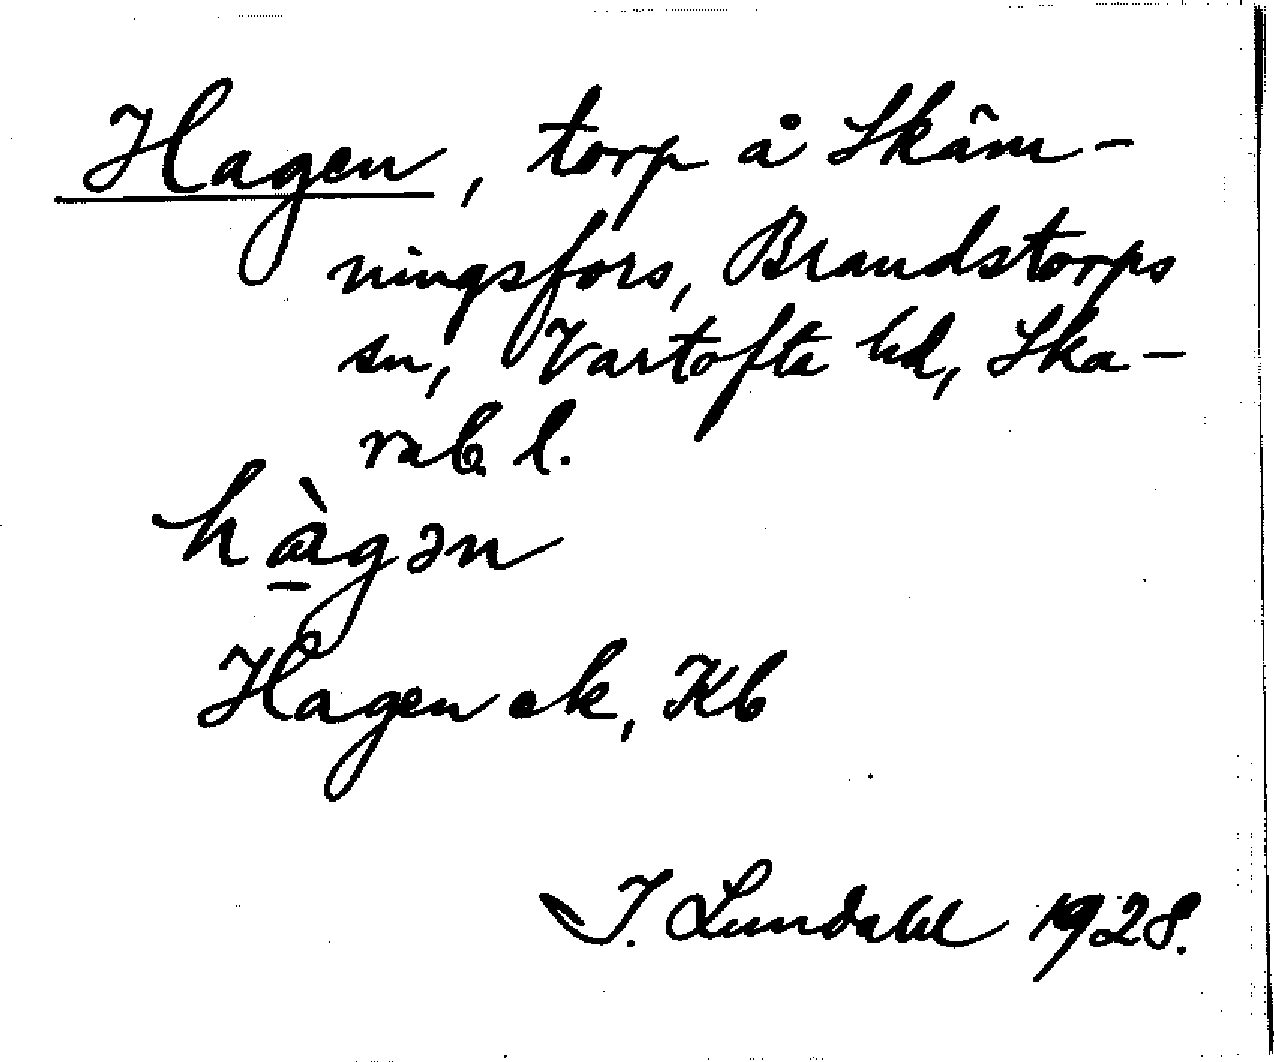 Hagen, torp å Skäm-
ningsfors, Brandstorps
sn, Vartofta hd, Ska-
rab. l.
hà̱gən
Hagen ek, Kb
I. Lundahl 1928.